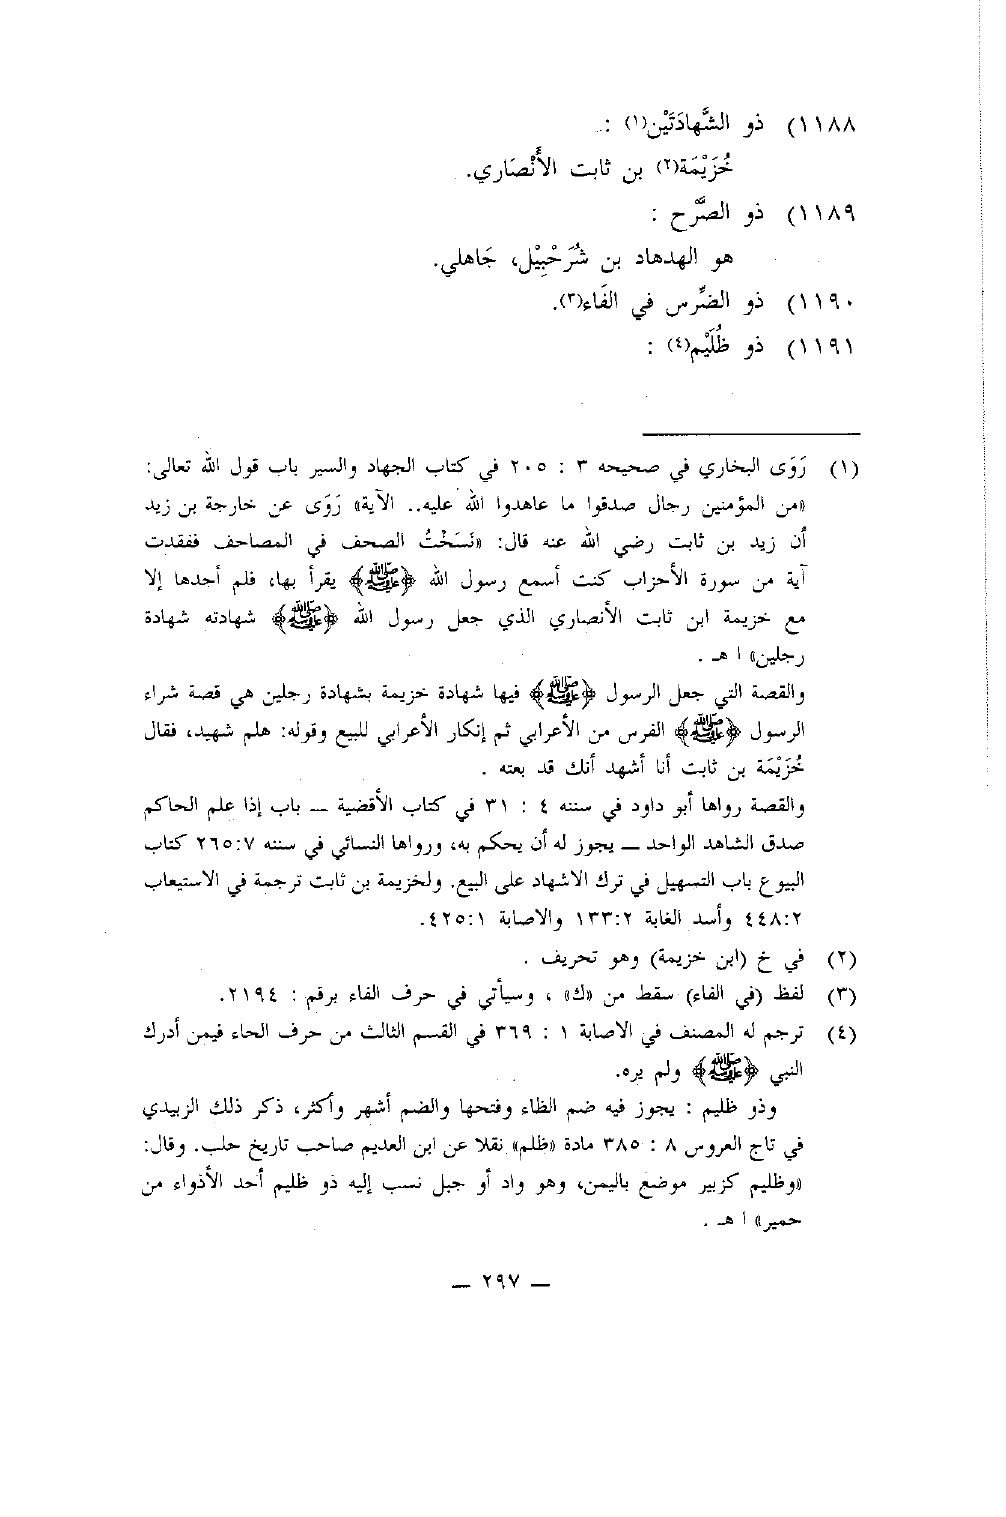 ١١٨٨) ذو الشَّهادَتَيْن(١) :
خُزَيْمَة(٢) بن ثابت الأَنْصَاري.
١١٨٩) ذو الصَّرْح :
هو الهدهاد بن شُرَحْبِيْل، جَاهلي.
١١٩٠) ذو الضِّرس في الفَاء(٣).
١١٩١) ذو ظُلَيْم(٤) :
(١) رَوَى البخاري في صحيحه ٣ : ٢٠٥ في كتاب الجهاد والسير باب قول الله تعالى:
«من المؤمنين رجال صدقوا ما عاهدوا الله عليه.. الآية» رَوَى عن خارجة بن زيد
أن زيد بن ثابت رضي الله عنه قال: «نَسَخْتُ الصحف في المصاحف ففقدت
آية من سورة الأحزاب كنت أسمع رسول الله ﴿ﷺ﴾ يقرأ بها، فلم أجدها إلا
مع خزيمة ابن ثابت الأنصاري الذي جعل رسول الله ﴿ﷺ﴾ شهادته شهادة
رجلين» ا هـ .
والقصة التي جعل الرسول ﴿ﷺ﴾ فيها شهادة خزيمة بشهادة رجلين هي قصة شراء
الرسول ﴿ﷺ﴾ الفرس من الأعرابي ثم إنكار الأعرابي للبيع وقوله: هلم شهيد، فقال
خُزَيْمَة بن ثابت أنا أشهد أنك قد بعته .
والقصة رواها أبو داود في سننه ٤ : ٣١ في كتاب الأقضية ــ باب إذا علم الحاكم
صدق الشاهد الواحد ــ يجوز له أن يحكم به، ورواها النسائي في سننه ٢٦٥:٧ كتاب
البيوع باب التسهيل في ترك الاشهاد على البيع. ولخزيمة بن ثابت ترجمة في الاستيعاب
٤٤٨:٢ وأسد الغابة ١٣٣:٢ والاصابة ٤٢٥:١.
(٢) في خ (ابن خزيمة) وهو تحريف .
(٣) لفظ (في الفاء) سقط من «ك» ، وسيأتي في حرف الفاء برقم : ٢١٩٤.
(٤) ترجم له المصنف في الاصابة ١ : ٣٦٩ في القسم الثالث من حرف الحاء فيمن أدرك
النبي ﴿ﷺ﴾ ولم يره.
وذو ظليم : يجوز فيه ضم الظاء وفتحها والضم أشهر وأكثر، ذكر ذلك الزبيدي
في تاج العروس ٨ : ٣٨٥ مادة «ظلم» نقلا عن ابن العديم صاحب تاريخ حلب. وقال:
«وظليم كزبير موضع باليمن، وهو واد أو جبل نسب إليه ذو ظليم أحد الأذواء من
حمير» ا هـ .
ــ ٢٩٧ ــ